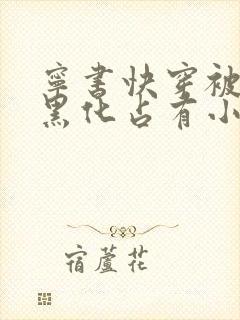 寧書快穿被
黑化占有小
宿蘆花